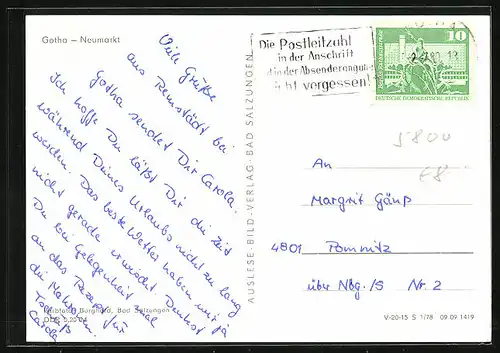 Gotha – Neumarkt
Viele Grüße
aus Remstädt bei
Gotha sendet Dir Carola.
Ich hoffe Du läßt Dir die Zeit
während Deines Urlaubs nicht zu lang
werden. Das beste Wetter haben wir ja
nicht gerade erwischt. Denkst
Du bei Gelegenheit mal
an das Rezept für
die
Carola
Burghard, Bad Salzungen
AUSLESE-BILD-VERLAG · BAD SALZUNGEN
Die Postleitzahl
in der Anschrift
in der Absenderangabe
nicht vergessen!
10
DEUTSCHE DEMOKRATISCHE REPUBLIK
5800
68
An
Margrit Gänß
4801 Pommnitz
über Nbg./S Nr. 2
V-20-15 S 1/78 09 09 1419